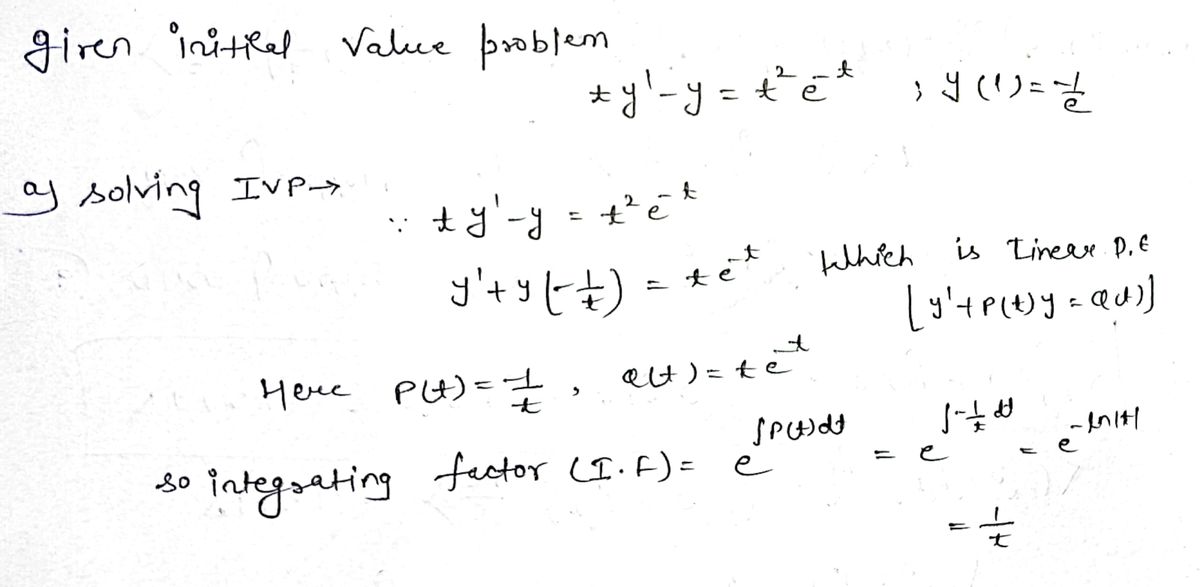 given initial value problem
ty' - y = t² e^-t ; y(1) = -1/e
a) solving IVP→
∵ ty' - y = t² e^-t
y' + y(-1/t) = t e^-t which is Linear D.E
[y' + P(t)y = Q(t)]
Here P(t) = -1/t , Q(t) = t e^-t
so integrating factor (I.F) = e^∫P(t)dt = e^∫-1/t dt = e^-ln|t|
= 1/t